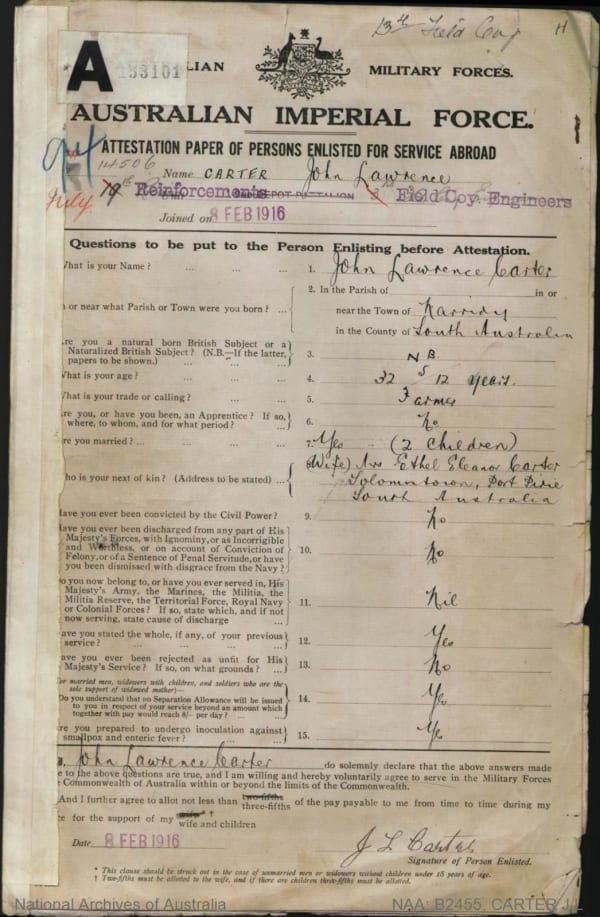 13th Field Coy H
A 33101
LIAN MILITARY FORCES.
AUSTRALIAN IMPERIAL FORCE.
ATTESTATION PAPER OF PERSONS ENLISTED FOR SERVICE ABROAD
14506
Name CARTER John Lawrence
July Reinforcements Field Coy. Engineers
Joined on 8 FEB 1916
Questions to be put to the Person Enlisting before Attestation.
What is your Name? ... ... ... 1. John Lawrence Carter
2. In the Parish of in or
n or near what Parish or Town were you born? ... near the Town of
in the County of South Australia
Are you a natural born British Subject or a
Naturalized British Subject? (N.B.—If the latter,
papers to be shown.) 3. N B
What is your age? ... ... ... 4. 32 5/12 Years.
What is your trade or calling? ... ... 5. Farmer
Are you, or have you been, an Apprentice? If so,
where, to whom, and for what period? ... 6. No
Are you married? ... ... ... 7. Yes (2 Children)
(Wife) Mrs Ethel Eleanor Carter
ho is your next of kin? (Address to be stated) ... Solomontown, Port Pirie
South Australia
Have you ever been convicted by the Civil Power? 9. No
Have you ever been discharged from any part of His
Majesty's Forces, with Ignominy, or as Incorrigible
and Worthless, or on account of Conviction of
Felony, or of a Sentence of Penal Servitude, or have
you been dismissed with disgrace from the Navy? 10. No
Do you now belong to, or have you ever served in, His
Majesty's Army, the Marines, the Militia, the
Militia Reserve, the Territorial Force, Royal Navy
or Colonial Forces? If so, state which, and if not
now serving, state cause of discharge 11. Nil
ave you stated the whole, if any, of your previous
service? 12. Yes
ave you ever been rejected as unfit for His
Majesty's Service? If so, on what grounds? 13. No
for married men, widowers with children, and soldiers who are the
sole support of widowed mother)—
Do you understand that no Separation Allowance will be issued
to you in respect of your service beyond an amount which
together with pay would reach 8/- per day? 14. Yes
re you prepared to undergo inoculation against
smallpox and enteric fever? 15. Yes
John Lawrence Carter do solemnly declare that the above answers made
e to the above questions are true, and I am willing and hereby voluntarily agree to serve in the Military Forces
Commonwealth of Australia within or beyond the limits of the Commonwealth.
And I further agree to allot not less than two-fifths three-fifths of the pay payable to me from time to time during my
ce for the support of my wife † wife and children
Date 8 FEB 1916
J L Carter
Signature of Person Enlisted.
* This clause should be struck out in the case of unmarried men or widowers without children under 18 years of age.
† Two-fifths must be allotted to the wife, and if there are children three-fifths must be allotted.
National Archives of Australia NAA: B2455, CARTER J L